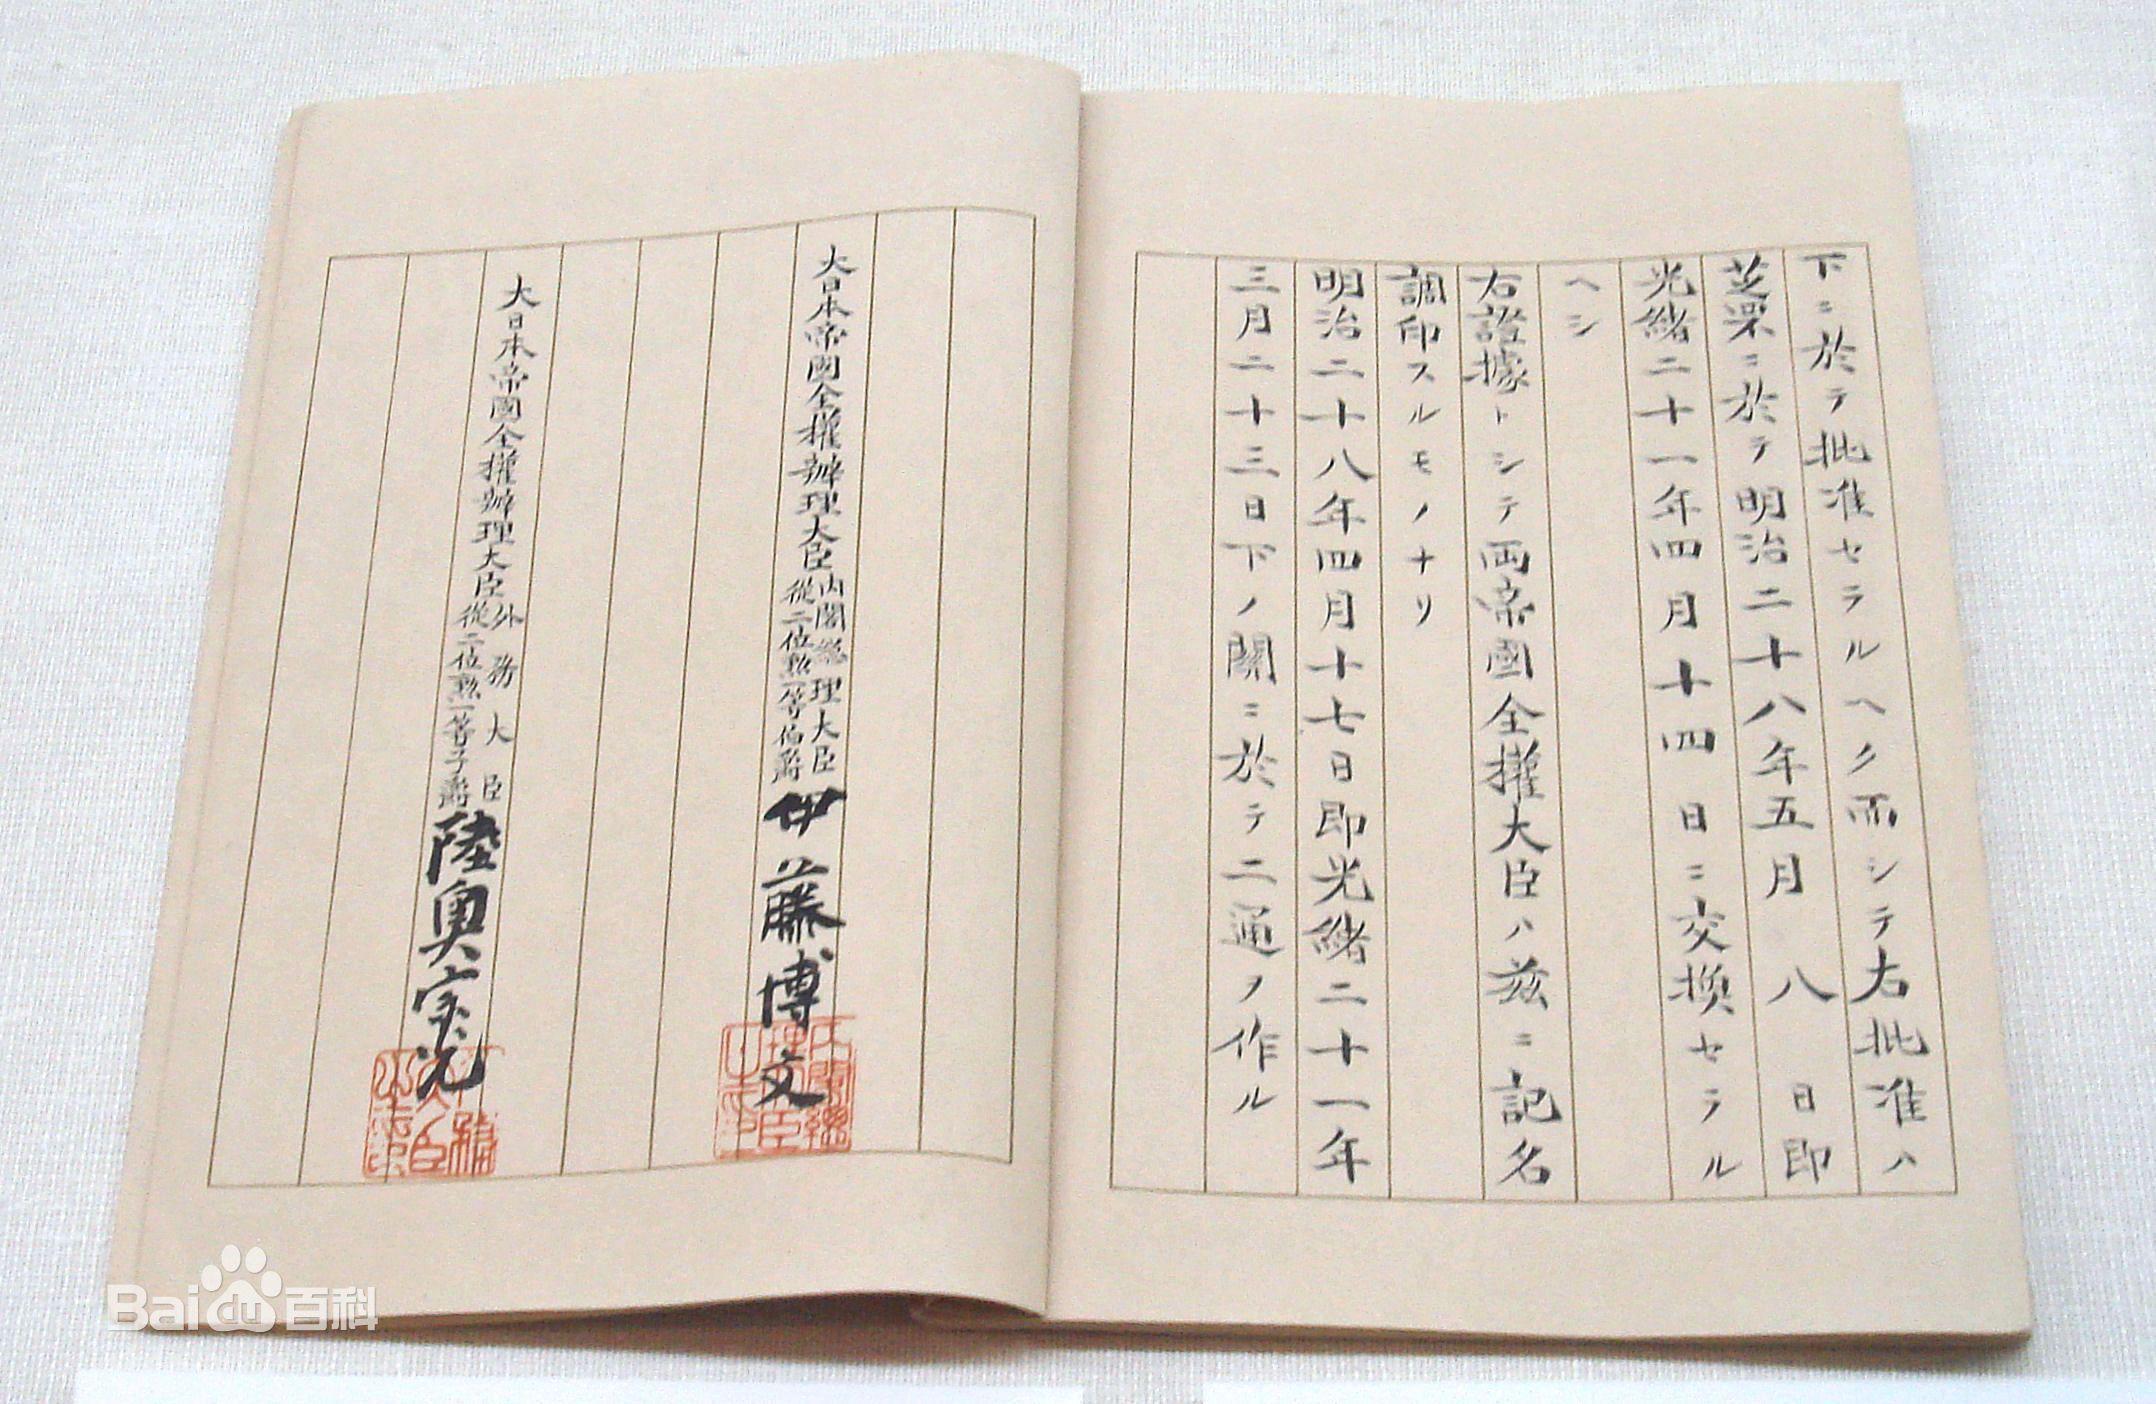 下ニ於テ批准セラルヘク而シテ右批准ハ
芝罘ニ於テ明治二十八年五月八日即
光緒二十一年四月十四日ニ交換セラル
ヘシ
右證據トシテ両帝國全權大臣ハ茲ニ記名
調印スルモノナリ
明治二十八年四月十七日即光緒二十一年
三月二十三日下ノ關ニ於テ二通ヲ作ル
大日本帝國全權辦理大臣
内閣總理大臣
從二位勲一等伯爵
伊藤博文
大日本帝國全權辦理大臣
外務大臣
從二位勲一等子爵
陸奥宗光
Baidu百科